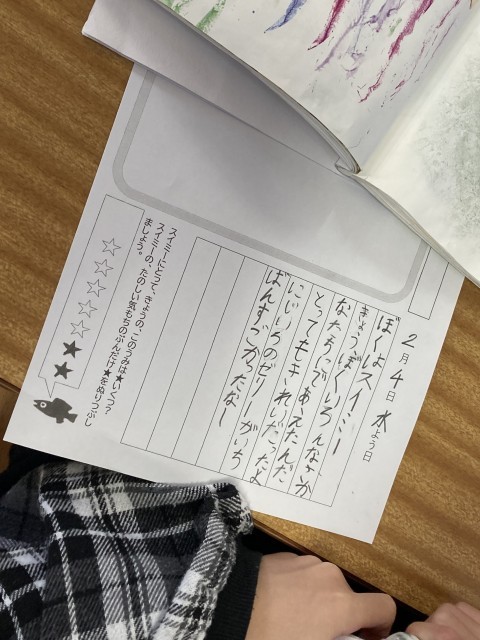 2月4日 水よう日
ぼくはスイミー
きょうぼくいろんなさか
なたちにであえたんだ
とってもきれいだったよ
にじいろのゼリーがいち
ばんすごかったなー
スイミーにとって、きょうの、このうみは★いくつ?
スイミーの、たのしい気もちのぶんだけ★をぬりつぶし
ましょう。
☆☆☆☆★★